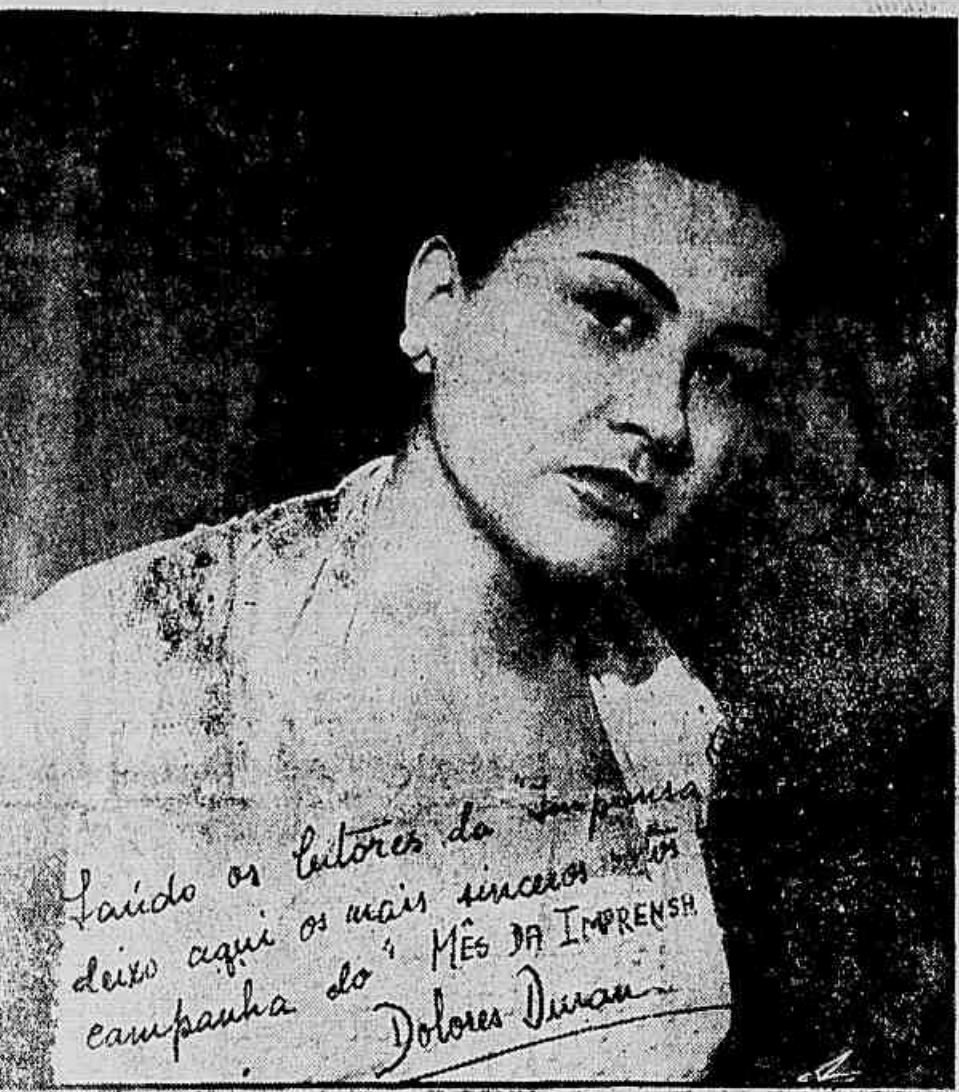 Saúdo os leitores da "Imprensa
deixo aqui os mais sinceros
campanha do "MÊS DA IMPRENSA
Dolores Duran